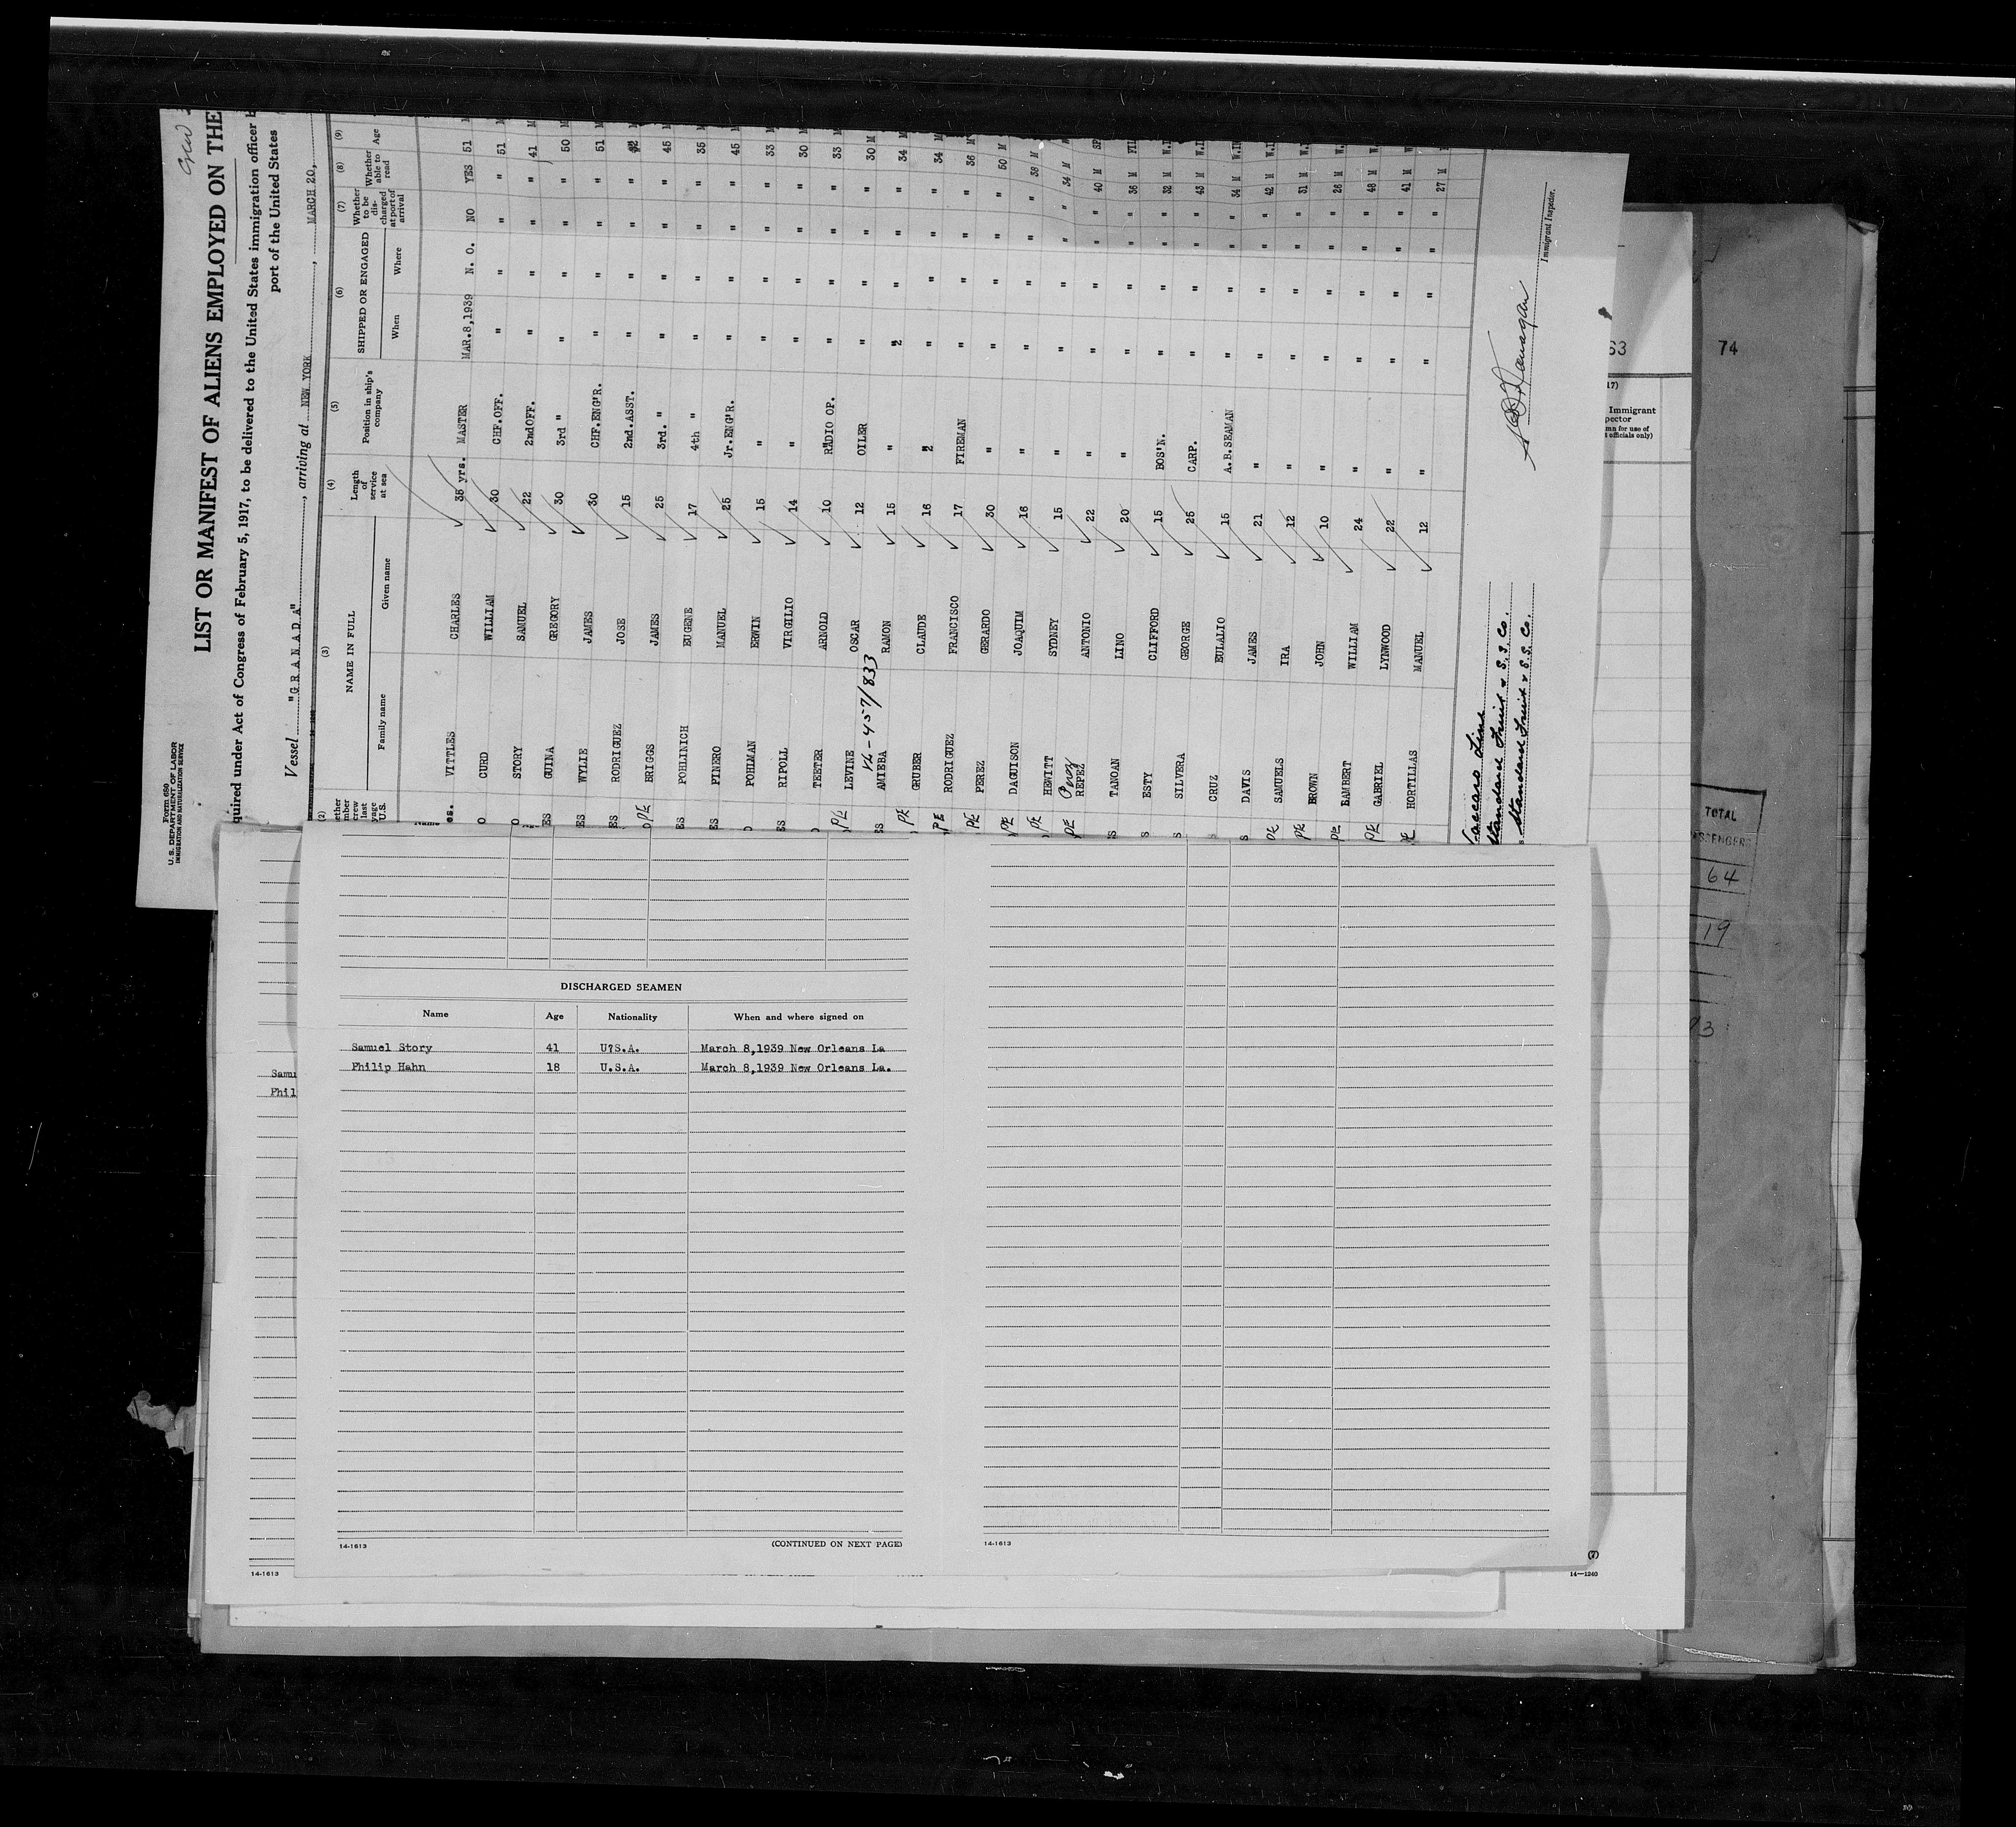 Crew
Form 680
U. S. DEPARTMENT OF LABOR
IMMIGRATION AND NATURALIZATION SERVICE
LIST OR MANIFEST OF ALIENS EMPLOYED ON THE
quired under Act of Congress of February 5, 1917, to be delivered to the United States immigration officer
port of the United States
Vessel "G R A N A D A", arriving at NEW YORK, MARCH 20,
(2) (3) (4) (5) (6) (7) (8) (9)
NAME IN FULL
Family name Given name
Length of service at sea
Position in ship's company
SHIPPED OR ENGAGED
When Where
Whether to be discharged at port of arrival
Whether able to read
Age
VITTLES CHARLES 35 yrs. MASTER MAR.8,1939 N. O. NO YES 51
CURD WILLIAM 30 CHF.OFF. " " " " 51
STORY SAMUEL 22 2ndOFF. " " " " 41
GUINA GREGORY 30 3rd " " " " " 50
WYLIE JAMES 30 CHF.ENG'R. " " " " 51
RODRIGUEZ JOSE 15 2nd.ASST. " " " "
BRIGGS JAMES 25 3rd. " " " " " 45
POHLINICH EUGENE 17 4th " " " " " 35
PINERO MANUEL 25 Jr.ENG'R. " " " " 45
POHLMAN ERWIN 15 " " " " " 33
RIPOLL VIRGILIO 14 " " " " " 30
TEETER ARNOLD 10 RADIO OP. " " " " 33
LEVINE OSCAR 12 OILER " " " " 30 M
VL-457/833
AMIEBA RAMON 15 " " " " " 34
GRUBER CLAUDE 16 " " " " " 34 M
RODRIGUEZ FRANCISCO 17 FIREMAN " " " " 36 M
PEREZ GERARDO 30 " " " " " 50 M
DAGUISON JOAQUIM 16 " " " " " 38 M
HEWITT SYDNEY 15 " " " " " 34 M
Perez
REPEZ ANTONIO 22 " " " " " 40 M SP
TANOAN LINO 20 " " " " " 36 M FIL
ESTY CLIFFORD 15 BOS'N. " " " " 32 M W.I
SILVERA GEORGE 25 CARP. " " " " 43 M W.I
CRUZ EULALIO 15 A.B.SEAMAN " " " " 34 M W.I
DAVIS JAMES 21 " " " " " 42 M W.I
SAMUELS IRA 12 " " " " " 31 M W.
BROWN JOHN 10 " " " " " 26 M W.
LAMBERT WILLIAM 24 " " " " " 48 M W.
GABRIEL LYNWOOD 22 " " " " " 41 M W
HORTILLAS MANUEL 12 " " " " " 27 M
Vaccaro Line
Standard Fruit & S. S. Co.
Standard Fruit & S.S. Co.
Immigrant Inspector.
63
74
17)
Immigrant
pector
mn for use of
officials only)
TOTAL
64
19
DISCHARGED SEAMEN
Name Age Nationality When and where signed on
Samuel Story 41 U?S.A. March 8,1939 New Orleans La
Philip Hahn 18 U.S.A. March 8,1939 New Orleans La.
Samu
Phil
14-1613
(CONTINUED ON NEXT PAGE)
14-1613
14-1613
(7)
14—1240